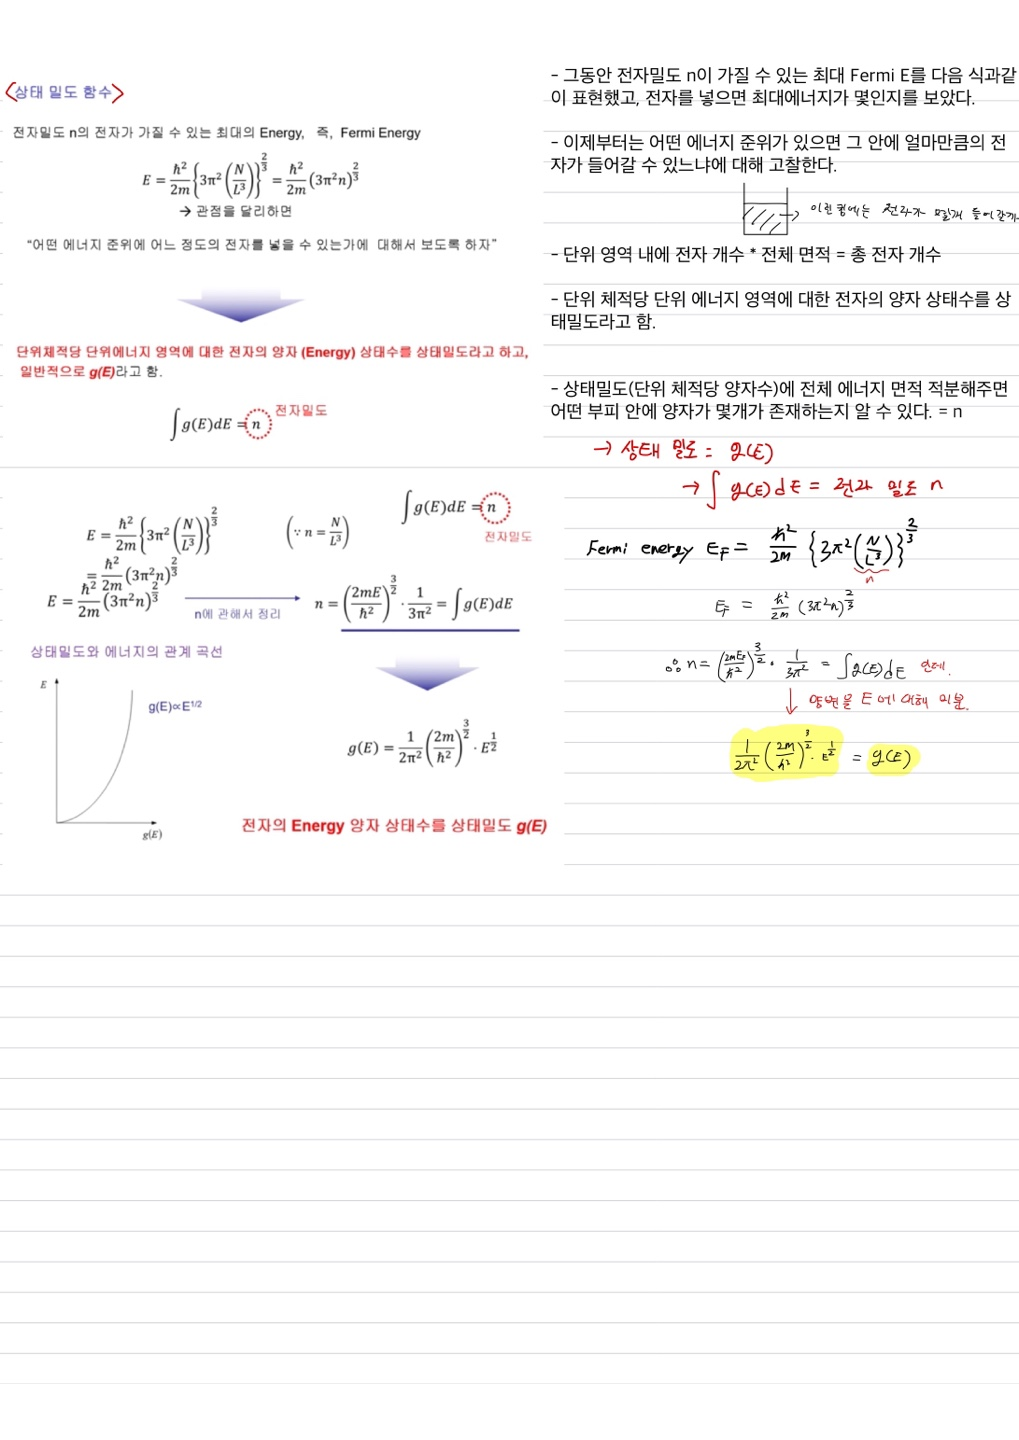 <상태 밀도 함수>
전자밀도 n의 전자가 가질 수 있는 최대의 Energy, 즉, Fermi Energy
E = ℏ²/2m {3π² (N/L³)}^(2/3) = ℏ²/2m (3π²n)^(2/3)
→ 관점을 달리하면
"어떤 에너지 준위에 어느 정도의 전자를 넣을 수 있는가에 대해서 보도록 하자"
단위체적당 단위에너지 영역에 대한 전자의 양자 (Energy) 상태수를 상태밀도라고 하고,
일반적으로 g(E)라고 함.
∫g(E)dE = n 전자밀도
∫g(E)dE = n
전자밀도
E = ℏ²/2m {3π² (N/L³)}^(2/3) (∵ n = N/L³)
= ℏ²/2m (3π²n)^(2/3)
E = ℏ²/2m (3π²n)^(2/3)
n에 관해서 정리
n = (2mE/ℏ²)^(3/2) · 1/3π² = ∫g(E)dE
상태밀도와 에너지의 관계 곡선
E
g(E)∝E^1/2
g(E)
g(E) = 1/2π² (2m/ℏ²)^(3/2) · E^(1/2)
전자의 Energy 양자 상태수를 상태밀도 g(E)
- 그동안 전자밀도 n이 가질 수 있는 최대 Fermi E를 다음 식과같
이 표현했고, 전자를 넣으면 최대에너지가 몇인지를 보았다.
- 이제부터는 어떤 에너지 준위가 있으면 그 안에 얼마만큼의 전
자가 들어갈 수 있느냐에 대해 고찰한다.
→ 이런 컵에는 전자가 몇개 들어갈까
- 단위 영역 내에 전자 개수 * 전체 면적 = 총 전자 개수
- 단위 체적당 단위 에너지 영역에 대한 전자의 양자 상태수를 상
태밀도라고 함.
- 상태밀도(단위 체적당 양자수)에 전체 에너지 면적 적분해주면
어떤 부피 안에 양자가 몇개가 존재하는지 알 수 있다. = n
→ 상태 밀도 = g(E)
→ ∫ g(E)dE = 전자 밀도 n
Fermi energy E_F = ℏ²/2m {3π²(N/L³)}^(2/3)
n
E_F = ℏ²/2m (3π²n)^(2/3)
∴ n = (2mE_F/ℏ²)^(3/2) · 1/3π² = ∫g(E)dE 인데,
↓ 양변을 E에 대해 미분.
1/2π² (2m/ℏ²)^(3/2) · E^(1/2) = g(E)